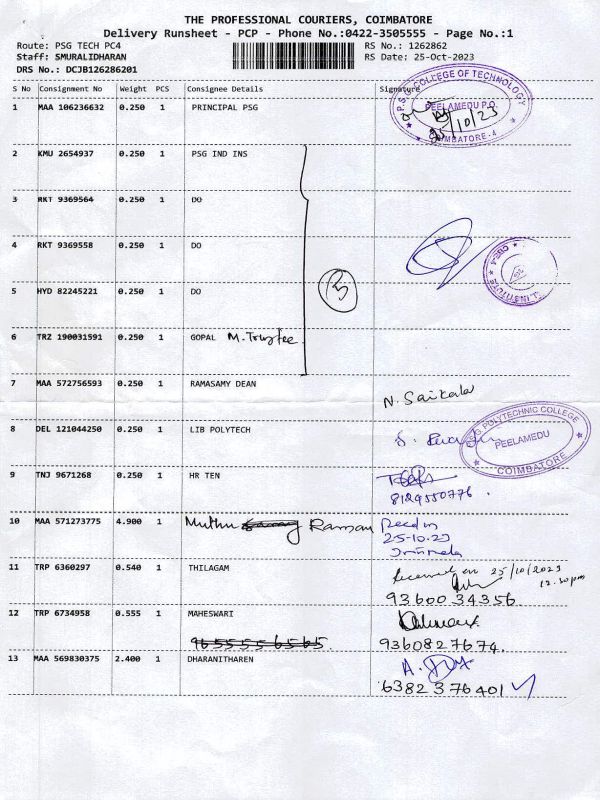 THE PROFESSIONAL COURIERS, COIMBATORE
Delivery Runsheet - PCP - Phone No.:0422-3505555 - Page No.:1
Route: PSG TECH PC4 RS No.: 1262862
Staff: SMURALIDHARAN RS Date: 25-Oct-2023
DRS No.: DCJB126286201
S No Consignment No Weight PCS Consignee Details Signature
1 MAA 106236632 0.250 1 PRINCIPAL PSG
COLLEGE OF TECHNOLOGY
PEELAMEDU P.O.
COIMBATORE-4
/10/23
2 KMU 2654937 0.250 1 PSG IND INS
3 RKT 9369564 0.250 1 DO
4 RKT 9369558 0.250 1 DO
5
5 HYD 82245221 0.250 1 DO
6 TRZ 190031591 0.250 1 GOPAL M. Trustee
7 MAA 572756593 0.250 1 RAMASAMY DEAN N. Saikala
8 DEL 121044250 0.250 1 LIB POLYTECH
POLYTECHNIC COLLEGE
PEELAMEDU
COIMBATORE
9 TNJ 9671268 0.250 1 HR TEN
8129550776.
10 MAA 571273775 4.900 1 Muthu Raman Recd on
25-10-23
11 TRP 6360297 0.540 1 THILAGAM Received on 25/10/2023
12.30pm
9360034356
12 TRP 6734958 0.555 1 MAHESWARI
9655556565. 9360827674.
13 MAA 569830375 2.400 1 DHARANITHAREN
6382376401